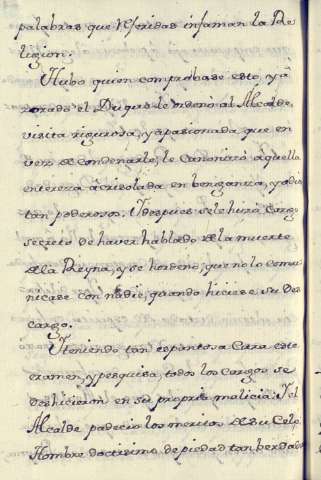 palabras que referidas infaman la Re
ligion.
Hubo quien comprobase esto, y a
el Duque le ordenó al Alcalde,
visita rigurosa, y apasionada que en
vez de condenarle, le canonizó aquella
entereza acrisolada en benganza, y odio
tan poderoso. Y despues se le hizo Cargo
secreto de haver hablado de la muerte
de la Reyna, y se hordenó, que no lo comu
nicase con nadie, quando hiciese su Des
cargo.
Y teniendo tan espantosa Cara este
examen, y pesquisa, todos los Cargos se
deshicieron en su propria malicia. Y el
Alcalde padecio los meritos de su Celo,
Hombre doctrimo de piedad tan berda